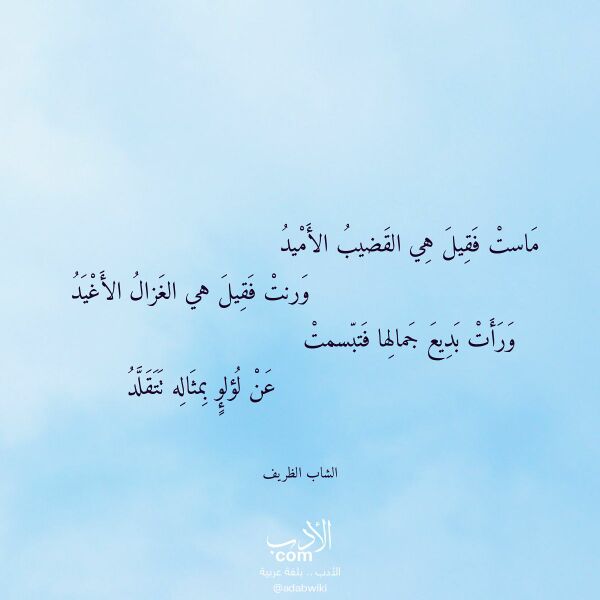 مَاستْ فَقِيلَ هِي القَضيبُ الأَمْيدُ
وَرنتْ فَقِيلَ هي الغَزالُ الأَغْيَدُ
وَرَأَتْ بَدِيعَ جَمالِها فَتبّسمتْ
عَنْ لُؤلوٍ بِمثَالِه تَتَقَلَّدُ
الشاب الظريف
الأدب
.com
الأدب .. بلغة عربية
@adabwiki